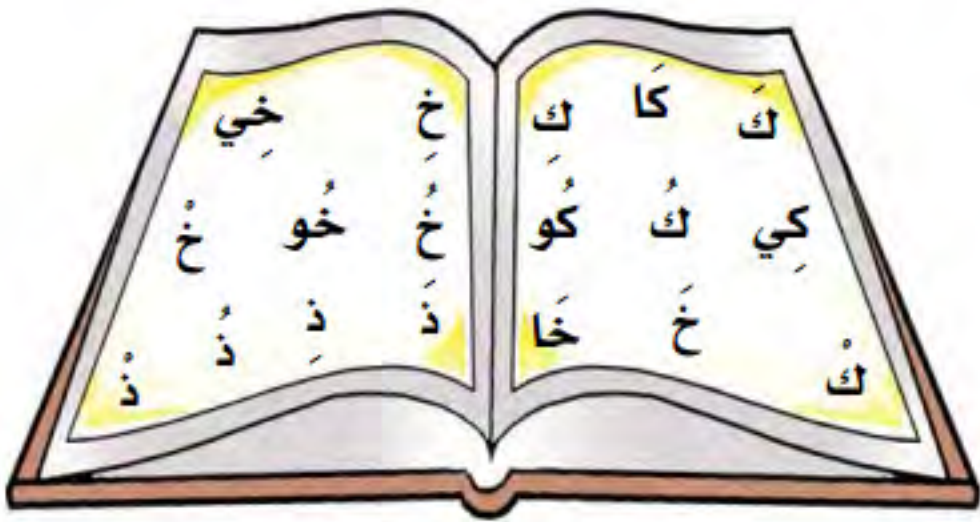 كَ كَا كِ
كِي كُ كُو
كْ خَ خَا
خِ خِي
خُ خُو خْ
ذَ ذِ ذُ ذْ